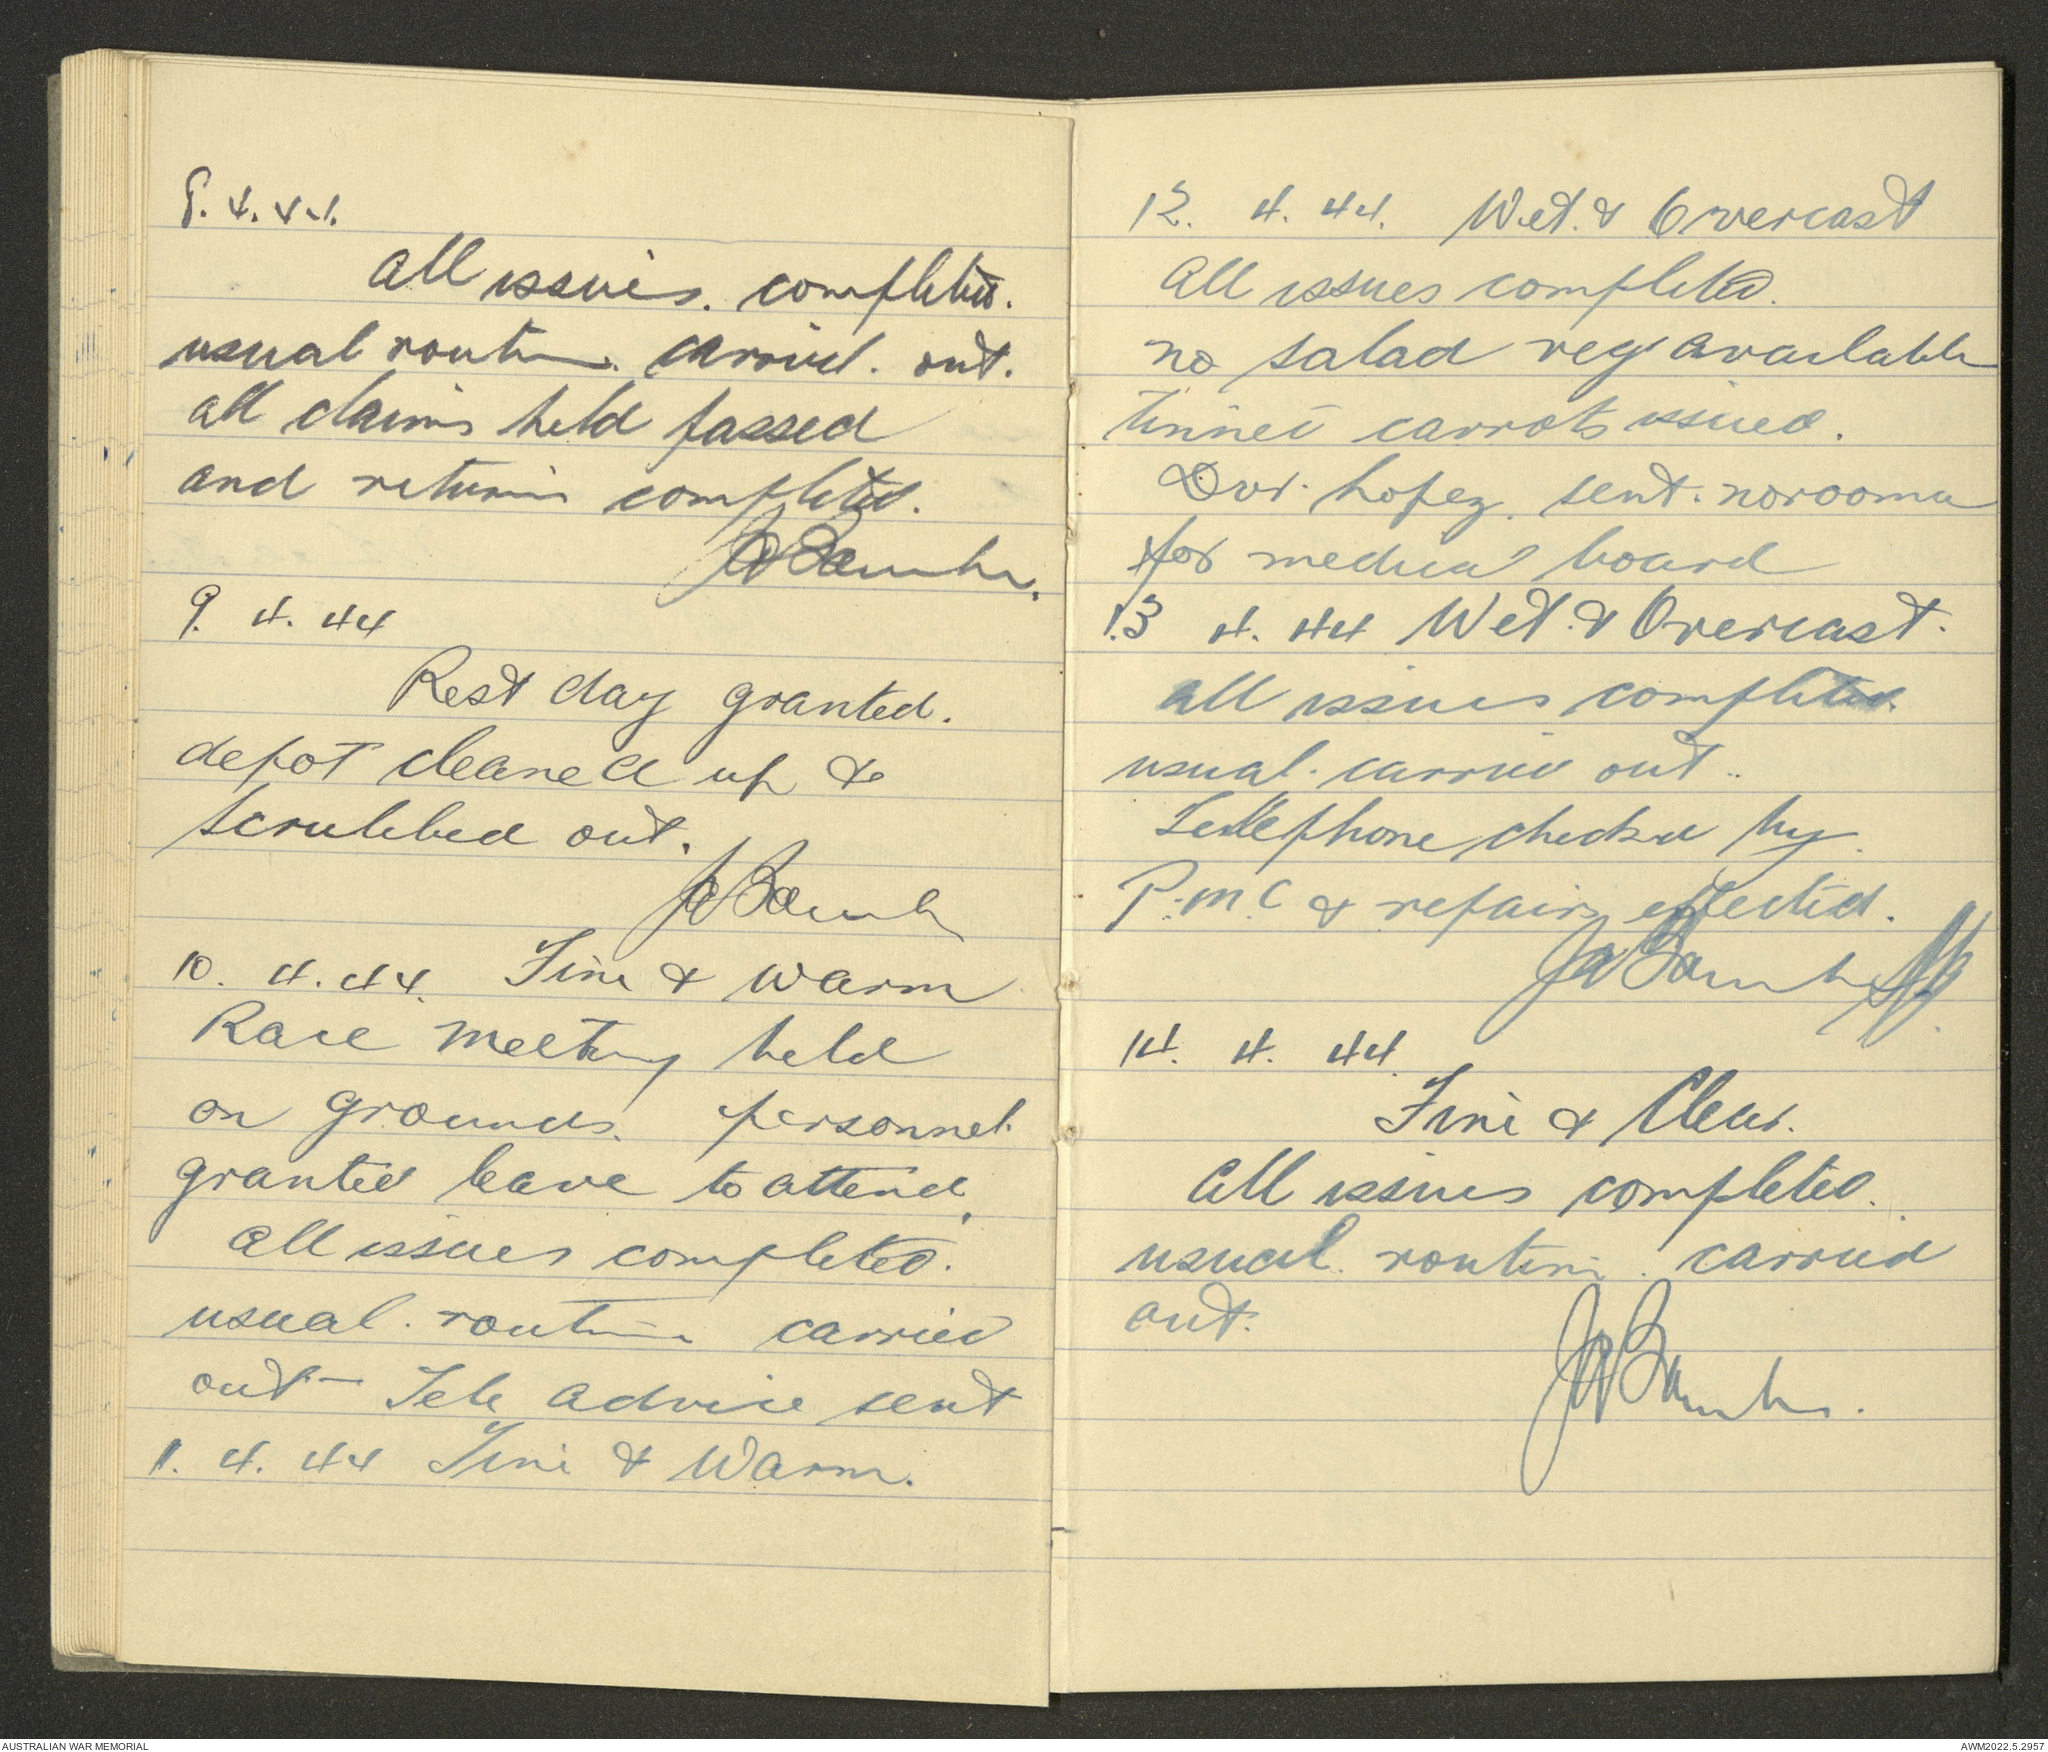 8. 4. 44.
All issues. completed.
usual routine. carried. out.
all claims held passed
and returns completed.
9. 4. 44
Rest day granted.
depot cleaned up &
scrubbed out.
10. 4. 44. Fine & Warm
Race Meeting held
on Grounds. personnel
granted leave to attend.
All issues completed.
usual. routine carried
out - Tele advice sent
11. 4. 44 Fine & Warm.
12. 4. 44. Wet. & Overcast
All issues completed.
no salad veg available
tinned carrots issued.
Dvr. Lopez. sent.
for medical board
13 4. 44 Wet. & Overcast.
all issues completed.
usual. carried out..
Telephone checked by.
P.M.C & repairs effected.
14. 4. 44.
Fine & Clear.
All issues completed.
usual. routine. carried
out.
AUSTRALIAN WAR MEMORIAL
AWM2022.5.2957